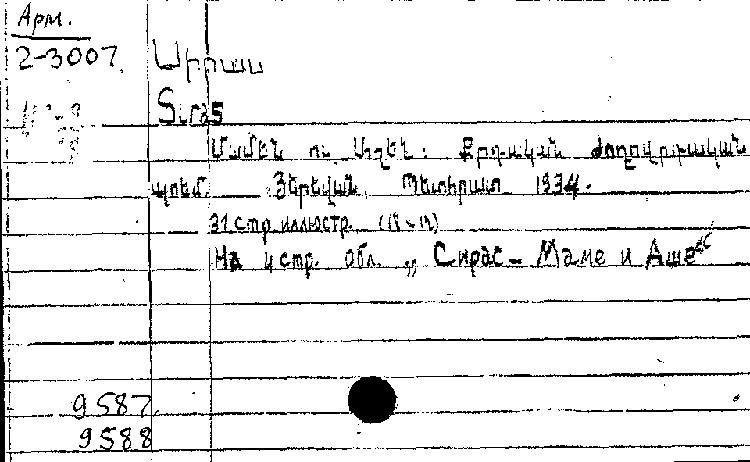 Арм.
2-3007.
Սիրաս
Տմբ
Մամեն ու Աշեն: Քրդական ժողովրդական
պոեմ. Յերեվան, Պետհրատ 1934.
31 стр. иллюстр.
На 4 стр. обл. „Сирас - Маме и Аше“
9587
9588